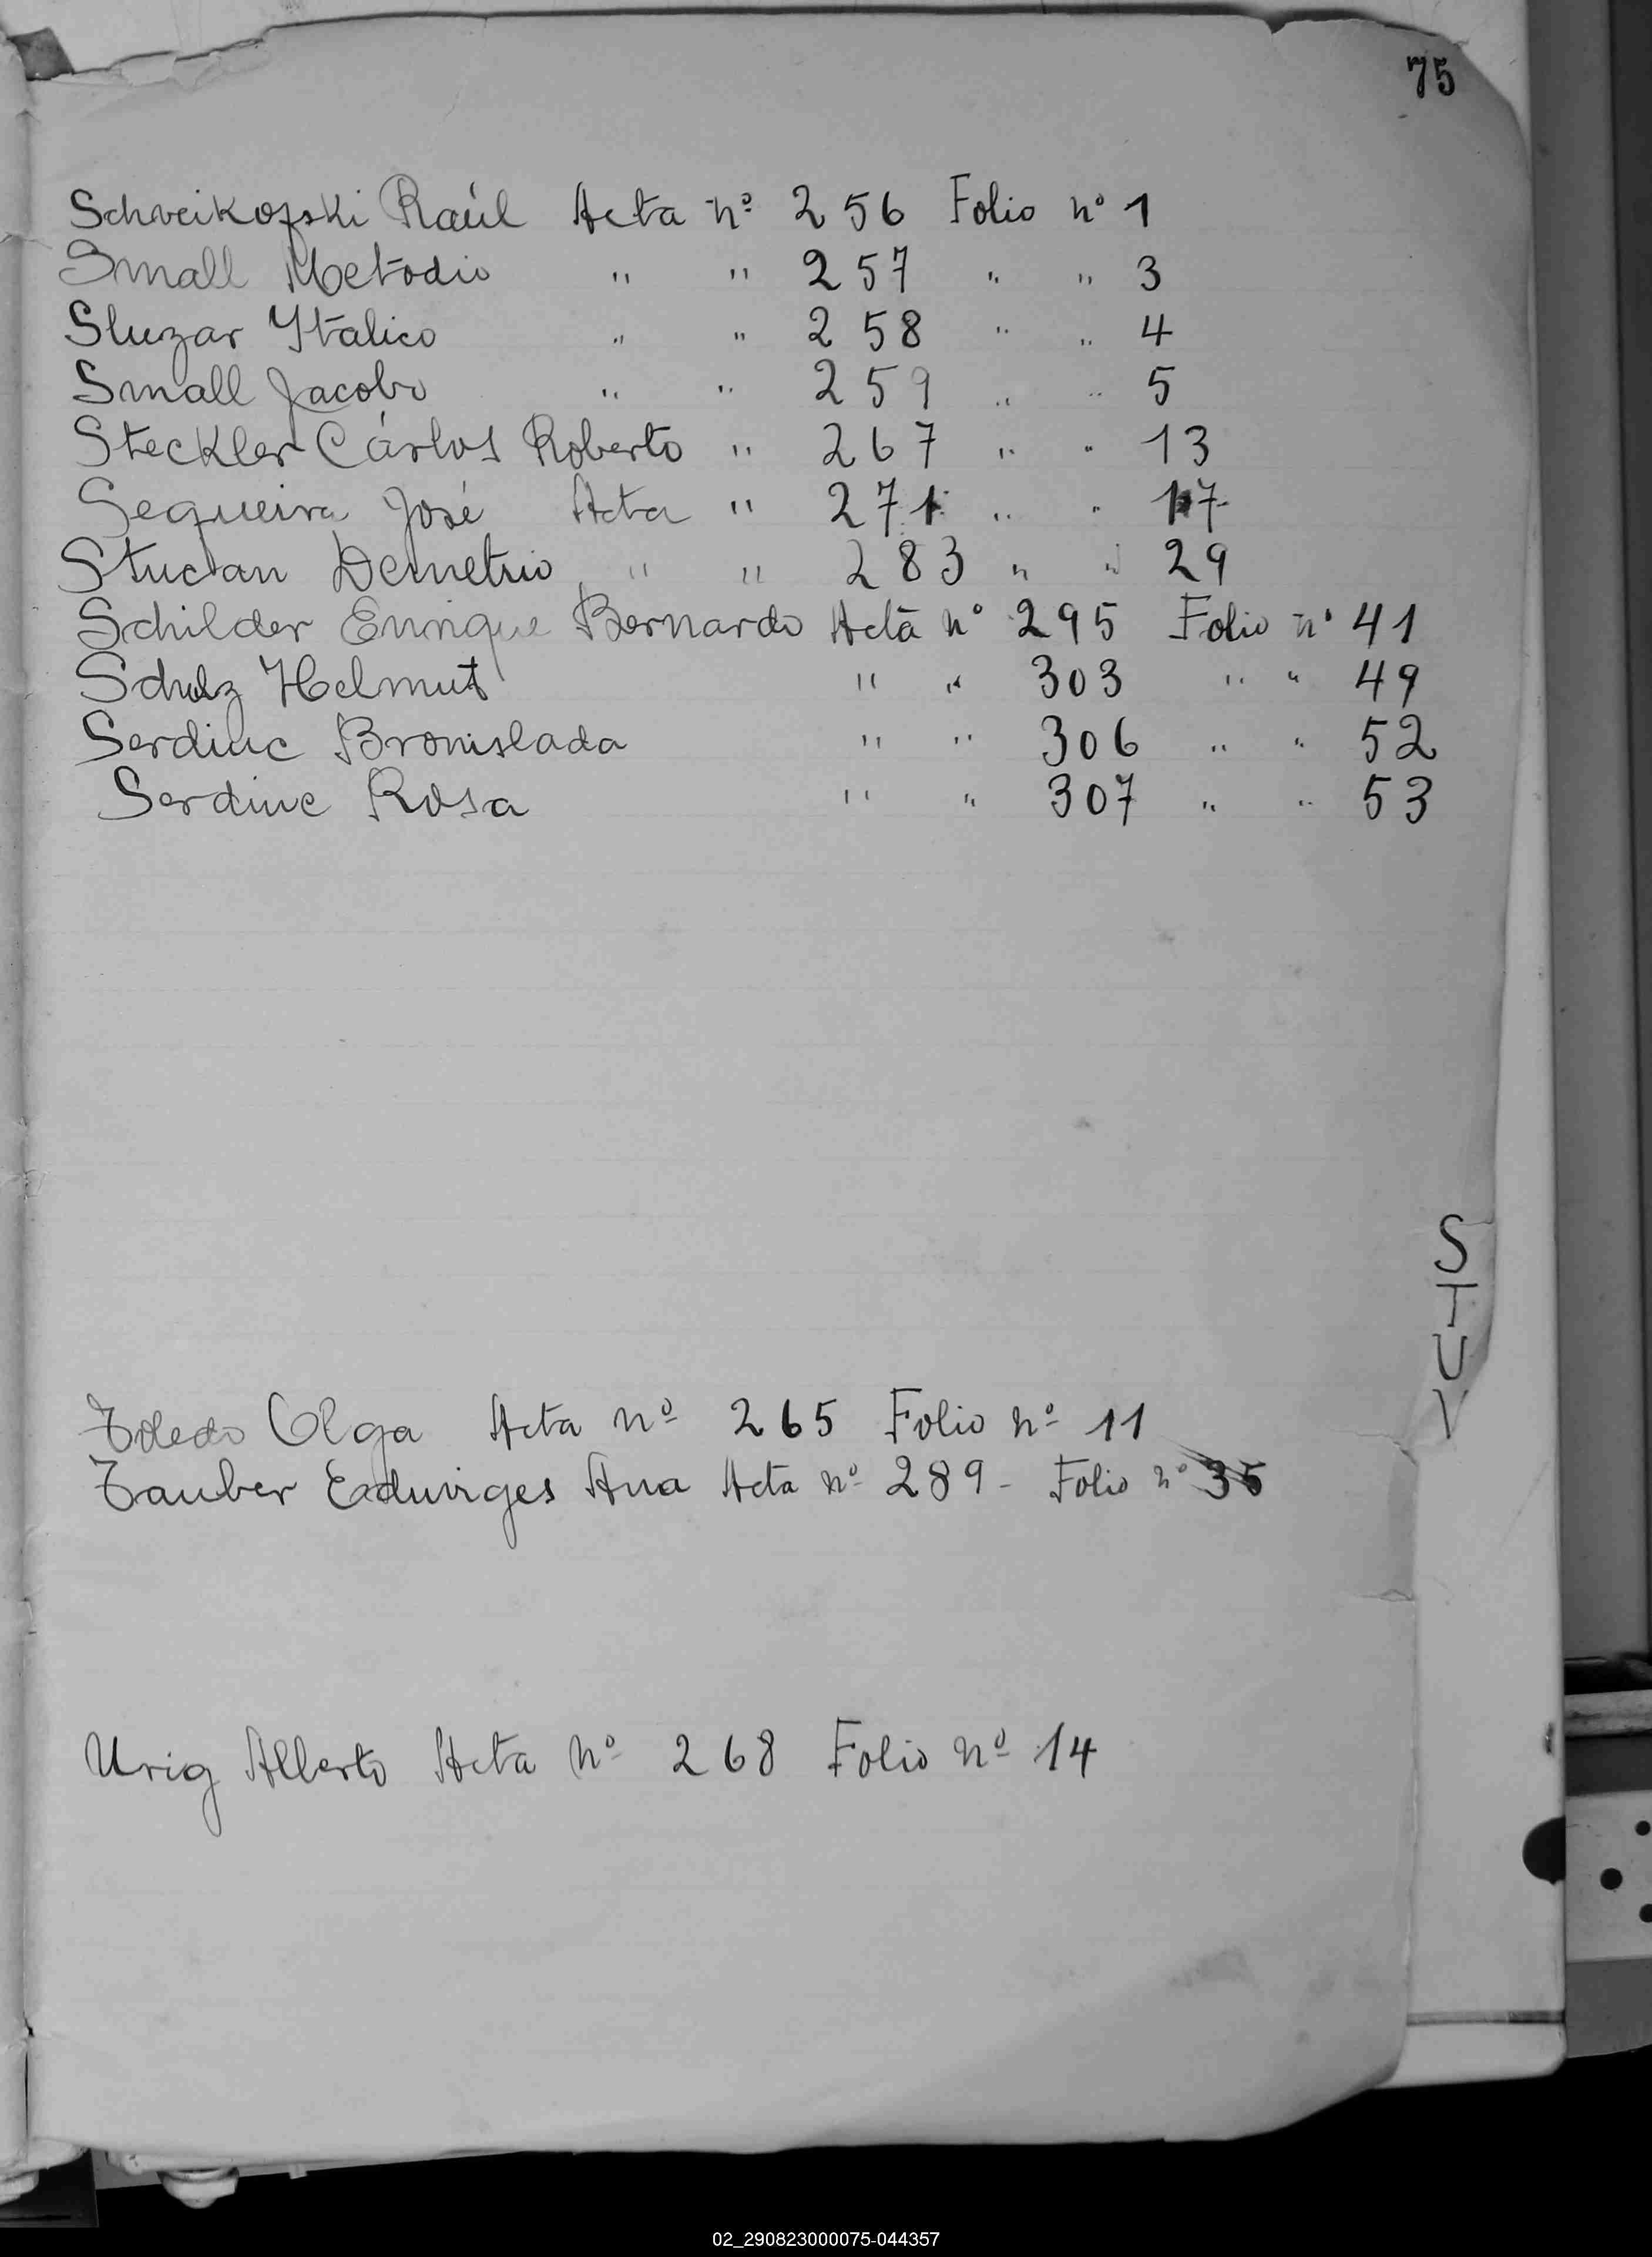 75
Schveikofski Raúl Acta nº 256 Folio nº 1
Small Metodio " " 257 " " 3
Sluzar Ytalico " " 258 " " 4
Small Jacobo " " 259 " " 5
Steckler Cárlos Roberto " 267 " " 13
Sequeira José Acta " 271 " " 17
Stucian Demetrio " " 283 " " 29
Schilder Enrique Bernardo Acta nº 295 Folio nº 41
Schulz Helmut " " 303 " " 49
Serdiuc Bronislada " " 306 " " 52
Serdiuc Rosa " " 307 " " 53
S
T
U
V
Toledo Olga Acta nº 265 Folio nº 11
Tauber Eduviges Ana Acta nº 289 - Folio nº 35
Urig Alberto Acta nº 268 Folio nº 14
02_290823000075-044357